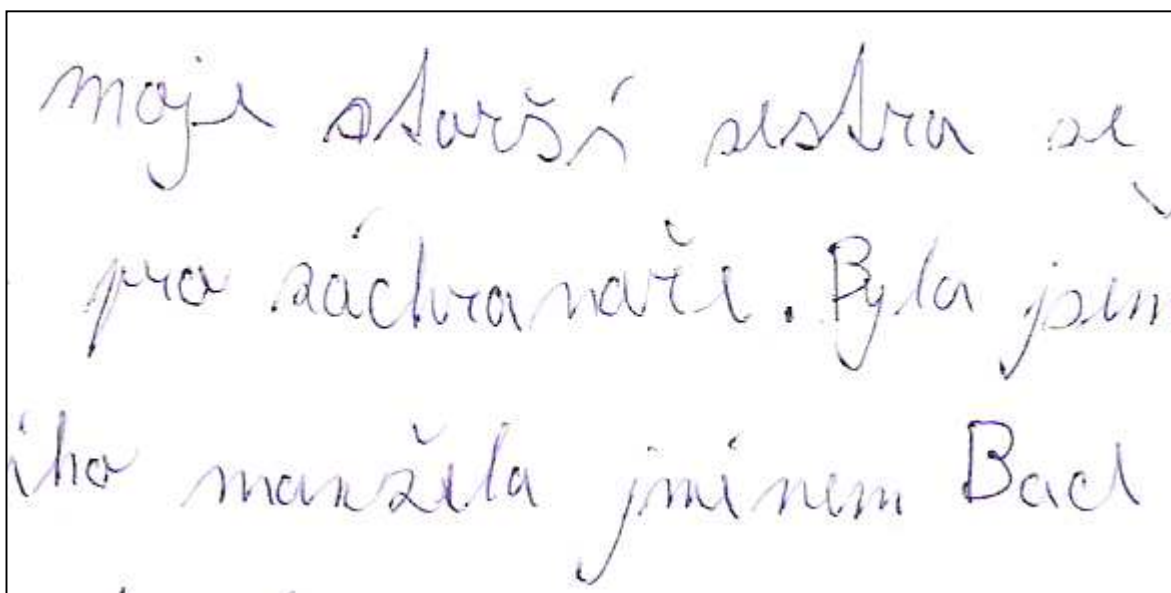 moje starší sestra se
pro záchranaře. Byla jsem
ího manžela jménem Bad